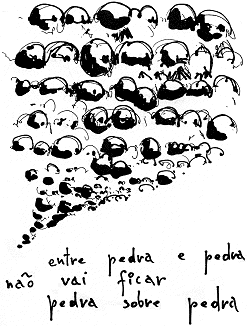 entre pedra e pedra
não vai ficar
pedra sobre pedra